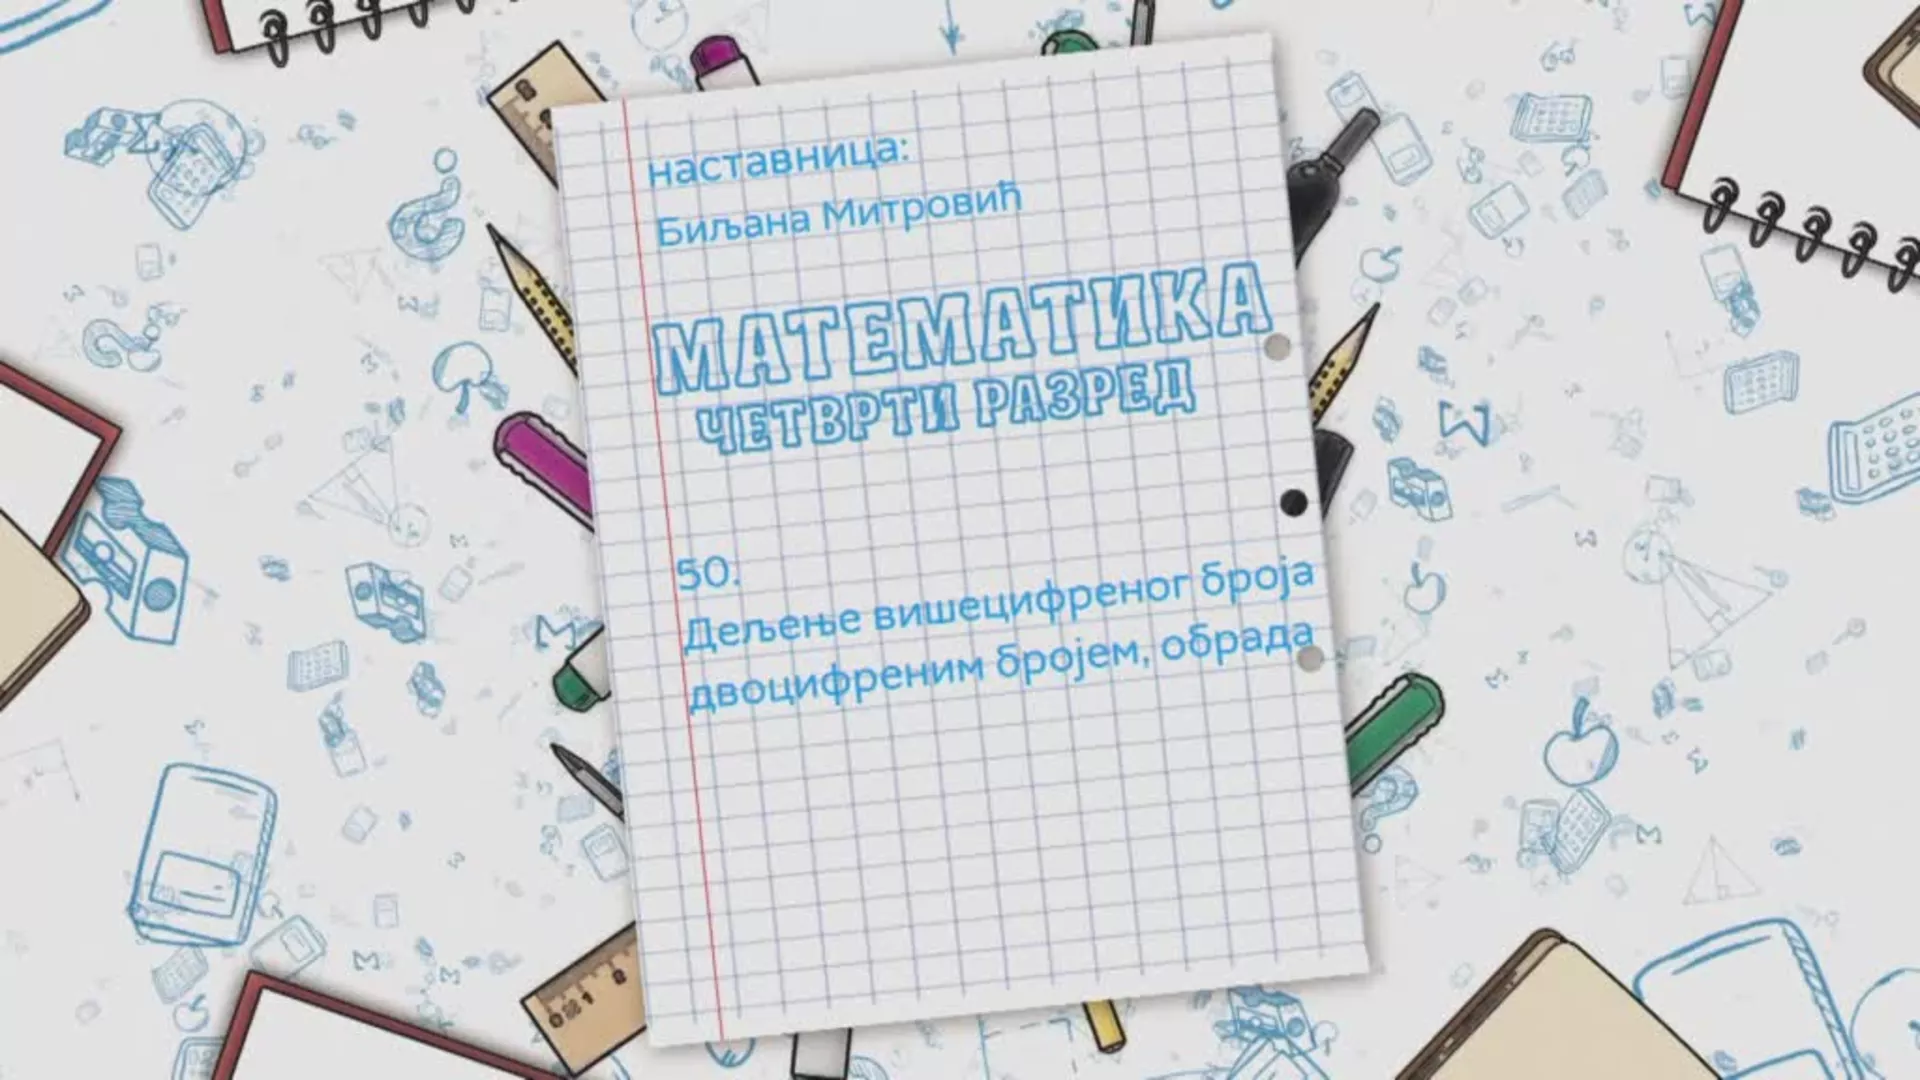 наставница:
Биљана Митровић
МАТЕМАТИКА
ЧЕТВРТИ РАЗРЕД
50.
Дељење вишецифреног броја
двоцифреним бројем, обрада